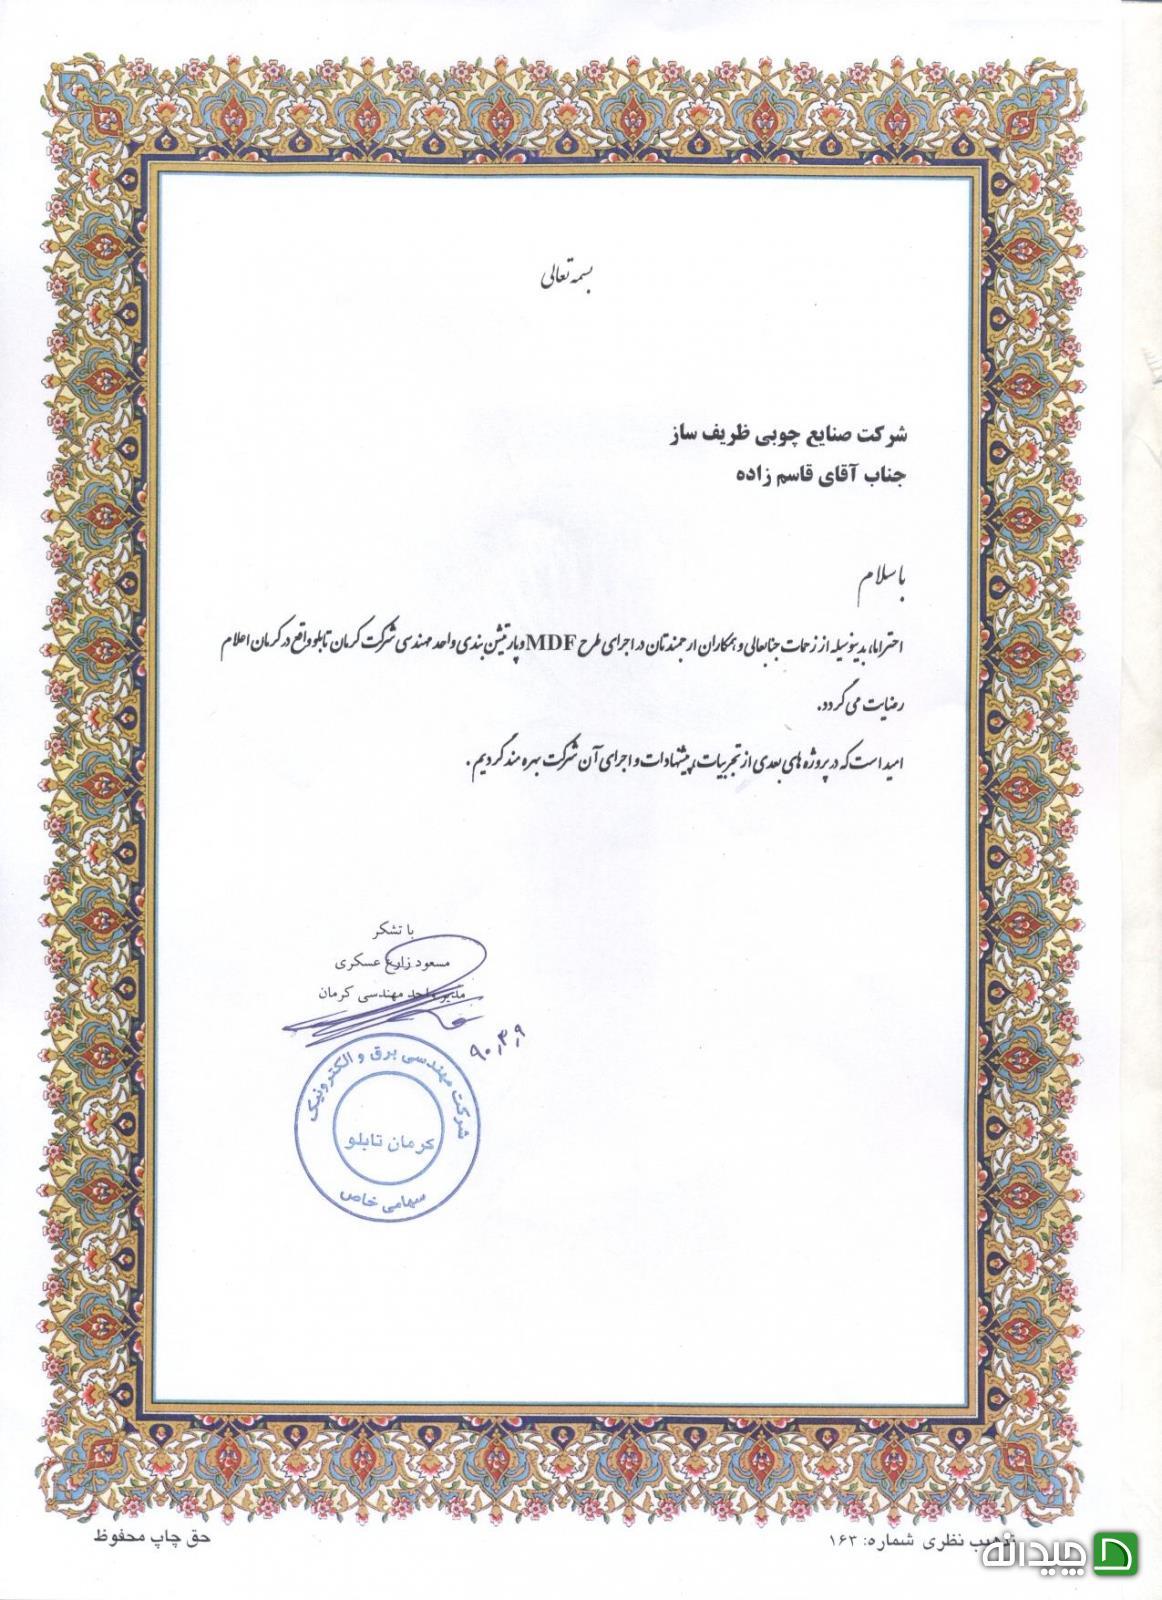 بسمه تعالی
شرکت صنایع چوبی ظریف ساز
جناب آقای قاسم زاده
با سلام
احتراما، بدینوسیله از زحمات جنابعالی و همکاران ارجمندتان در اجرای طرح MDF و پارتیشن بندی واحد مهندسی شرکت کرمان تابلو واقع در کرمان اعلام
رضایت می گردد.
امید است که در پروژه های بعدی از تجربیات، پیشنهادات و اجرای آن شرکت بهره مند گردیم.
با تشکر
مسعود زارع عسکری
مدیر واحد مهندسی کرمان
۹۰,۳,۹
شرکت مهندسی برق و الکترونیک
کرمان تابلو
سهامی خاص
تذهیب نظری شماره: ۱۶۳
حق چاپ محفوظ
چیدانه